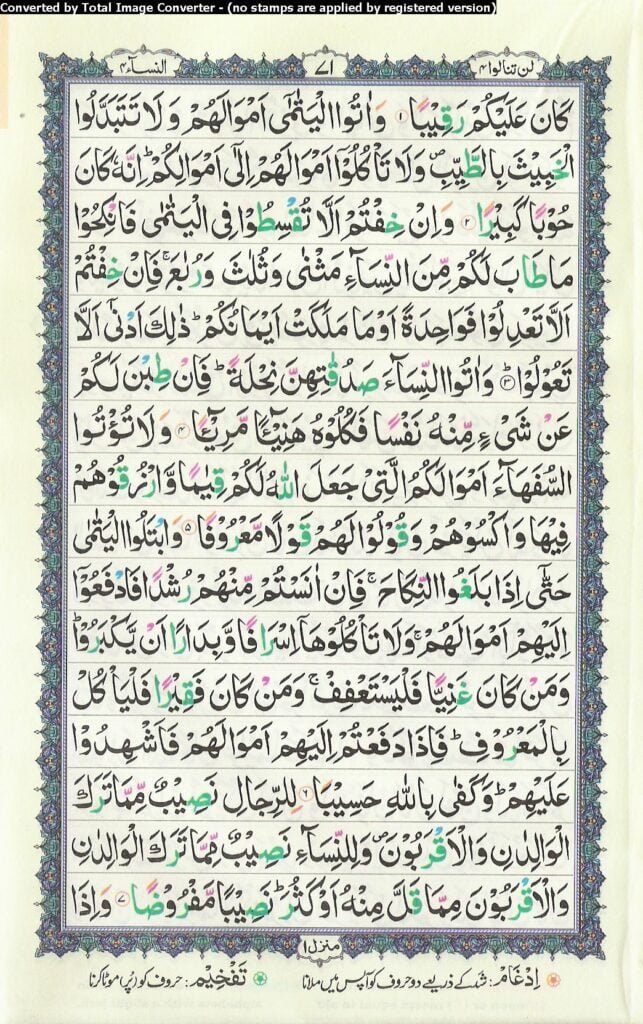 Converted by Total Image Converter - (no stamps are applied by registered version)
لن تنالوا ۴
۷۱
النسآء ۴
كَانَ عَلَيْكُمْ رَقِيْبًا ۱ وَاٰتُوا الْيَتٰمٰٓى اَمْوَالَهُمْ وَلَا تَتَبَدَّلُوا
الْخَبِيْثَ بِالطَّيِّبِ ۪ وَلَا تَاْكُلُوْۤا اَمْوَالَهُمْ اِلٰٓى اَمْوَالِكُمْ ؕ اِنَّهٗ كَانَ
حُوْبًا كَبِيْرًا ۲ وَاِنْ خِفْتُمْ اَلَّا تُقْسِطُوْا فِى الْيَتٰمٰى فَانْكِحُوْا
مَا طَابَ لَكُمْ مِّنَ النِّسَآءِ مَثْنٰى وَثُلٰثَ وَرُبٰعَ ۚ فَاِنْ خِفْتُمْ
اَلَّا تَعْدِلُوْا فَوَاحِدَةً اَوْ مَا مَلَكَتْ اَيْمَانُكُمْ ؕ ذٰلِكَ اَدْنٰٓى اَلَّا
تَعُوْلُوْا ؕ ۳ وَاٰتُوا النِّسَآءَ صَدُقٰتِهِنَّ نِحْلَةً ؕ فَاِنْ طِبْنَ لَكُمْ
عَنْ شَىْءٍ مِّنْهُ نَفْسًا فَكُلُوْهُ هَنِيْٓئًا مَّرِيْٓئًا ۴ وَلَا تُؤْتُوا
السُّفَهَآءَ اَمْوَالَكُمُ الَّتِىْ جَعَلَ اللّٰهُ لَكُمْ قِيٰمًا وَّارْزُقُوْهُمْ
فِيْهَا وَاكْسُوْهُمْ وَقُوْلُوْا لَهُمْ قَوْلًا مَّعْرُوْفًا ۵ وَابْتَلُوا الْيَتٰمٰى
حَتّٰۤى اِذَا بَلَغُوا النِّكَاحَ ۚ فَاِنْ اٰنَسْتُمْ مِّنْهُمْ رُشْدًا فَادْفَعُوْۤا
اِلَيْهِمْ اَمْوَالَهُمْ ۚ وَلَا تَاْكُلُوْهَاۤ اِسْرَافًا وَّبِدَارًا اَنْ يَّكْبَرُوْا ؕ
وَمَنْ كَانَ غَنِيًّا فَلْيَسْتَعْفِفْ ۚ وَمَنْ كَانَ فَقِيْرًا فَلْيَاْكُلْ
بِالْمَعْرُوْفِ ؕ فَاِذَا دَفَعْتُمْ اِلَيْهِمْ اَمْوَالَهُمْ فَاَشْهِدُوْا
عَلَيْهِمْ ؕ وَكَفٰى بِاللّٰهِ حَسِيْبًا ۶ لِلرِّجَالِ نَصِيْبٌ مِّمَّا تَرَكَ
الْوَالِدٰنِ وَالْاَقْرَبُوْنَ ۪ وَلِلنِّسَآءِ نَصِيْبٌ مِّمَّا تَرَكَ الْوَالِدٰنِ
وَالْاَقْرَبُوْنَ مِمَّا قَلَّ مِنْهُ اَوْ كَثُرَ ؕ نَصِيْبًا مَّفْرُوْضًا ۷ وَاِذَا
منزل ۱
اِدْغَام: شد کے ذریعے دو حروف کو آپس میں ملانا تَفْخِيْم: حروف کو پُر موٹا کرنا